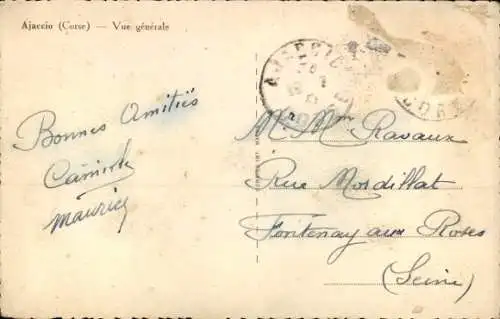 Ajaccio (Corse) — Vue générale
Bonnes Amitiés
Camille
Maurice
M. Mme Ravaux
Rue Mordillat
Fontenay aux Roses
(Seine)
AJACCIO